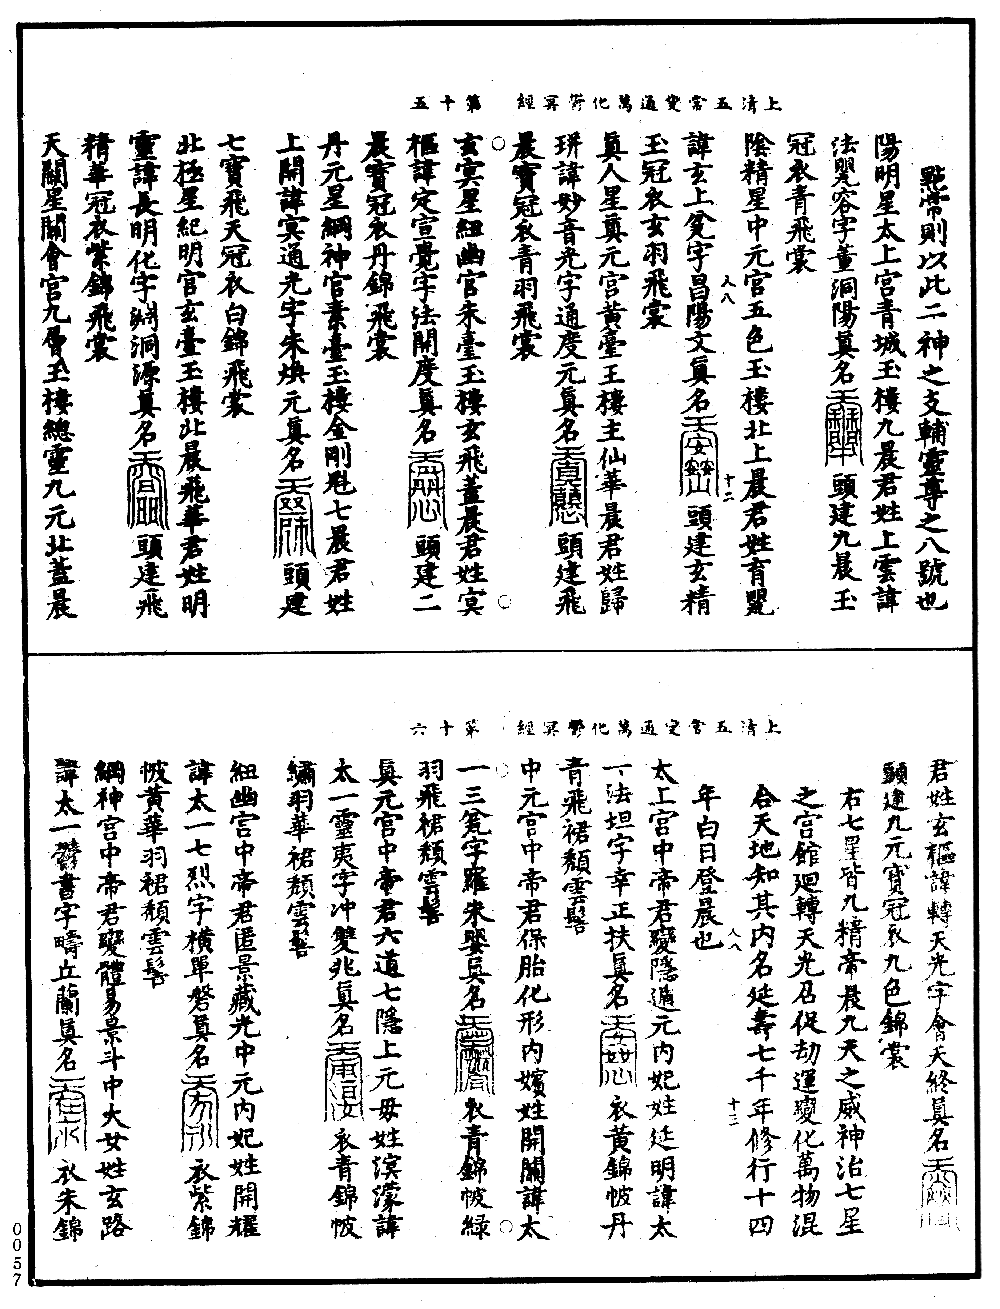 上清五常變通萬化鬱冥經　第十五
點常則以此二神之支輔靈尊之八號也
陽明星太上宮青城玉樓九晨君姓上雲諱
法嬰容字董洞陽真名　頭建九晨玉
冠衣青飛裳
陰精星中元宮五色玉樓北上晨君姓育嬰
諱玄上皃字昌陽文真名　頭建玄精
玉冠衣玄羽飛裳
真人星真元宮黃臺玉樓主仙華晨君姓歸
琳諱妙音光字通度元真名　頭建飛
晨寶冠衣青羽飛裳
玄冥星紐幽宮朱臺玉樓玄飛蓋晨君姓冥
樞諱定宣覺字法開度真名　頭建二
晨寶冠衣丹錦飛裳
丹元星綱神宮素臺玉樓金剛魁七晨君姓
上開諱冥通光字朱煥元真名　頭建
七寶飛天冠衣白錦飛裳
北極星紀明宮玄臺玉樓北晨飛華君姓明
靈諱長明化字淵洞源真名　頭建飛
精華冠衣紫錦飛裳
天關星關會宮九層玉樓總靈九元北蓋晨
上清五常變通萬化鬱冥經　第十六
君姓玄樞諱轉天光字會天終真名
頭建九元寶冠衣九色錦裳
右七星皆九精帝晨九天之威神治七星
之宮館迴轉天光召促劫運變化萬物混
合天地知其內名延壽七千年修行十四
年白日登晨也
太上宮中帝君變隱遁元內妃姓延明諱太
一法坦字幸正扶真名　衣黃錦帔丹
青飛裙頹雲髻
中元宮中帝君保胎化形內嬪姓開闌諱太
一三皃字羅朱嬰真名　衣青錦帔綠
羽飛裙頹雲髻
真元宮中帝君六道七隱上元毋姓溟濛諱
太一靈夷字冲雙兆真名　衣青錦帔
繡羽華裙頹雲髻
紐幽宮中帝君匿景藏光中元內妃姓開耀
諱太一七烈字橫單磐真名　衣紫錦
帔黃華羽裙頹雲髻
綱神宮中帝君變體易景斗中大女姓玄路
諱太一鬱書字疇丘蘭真名　衣朱錦
0057